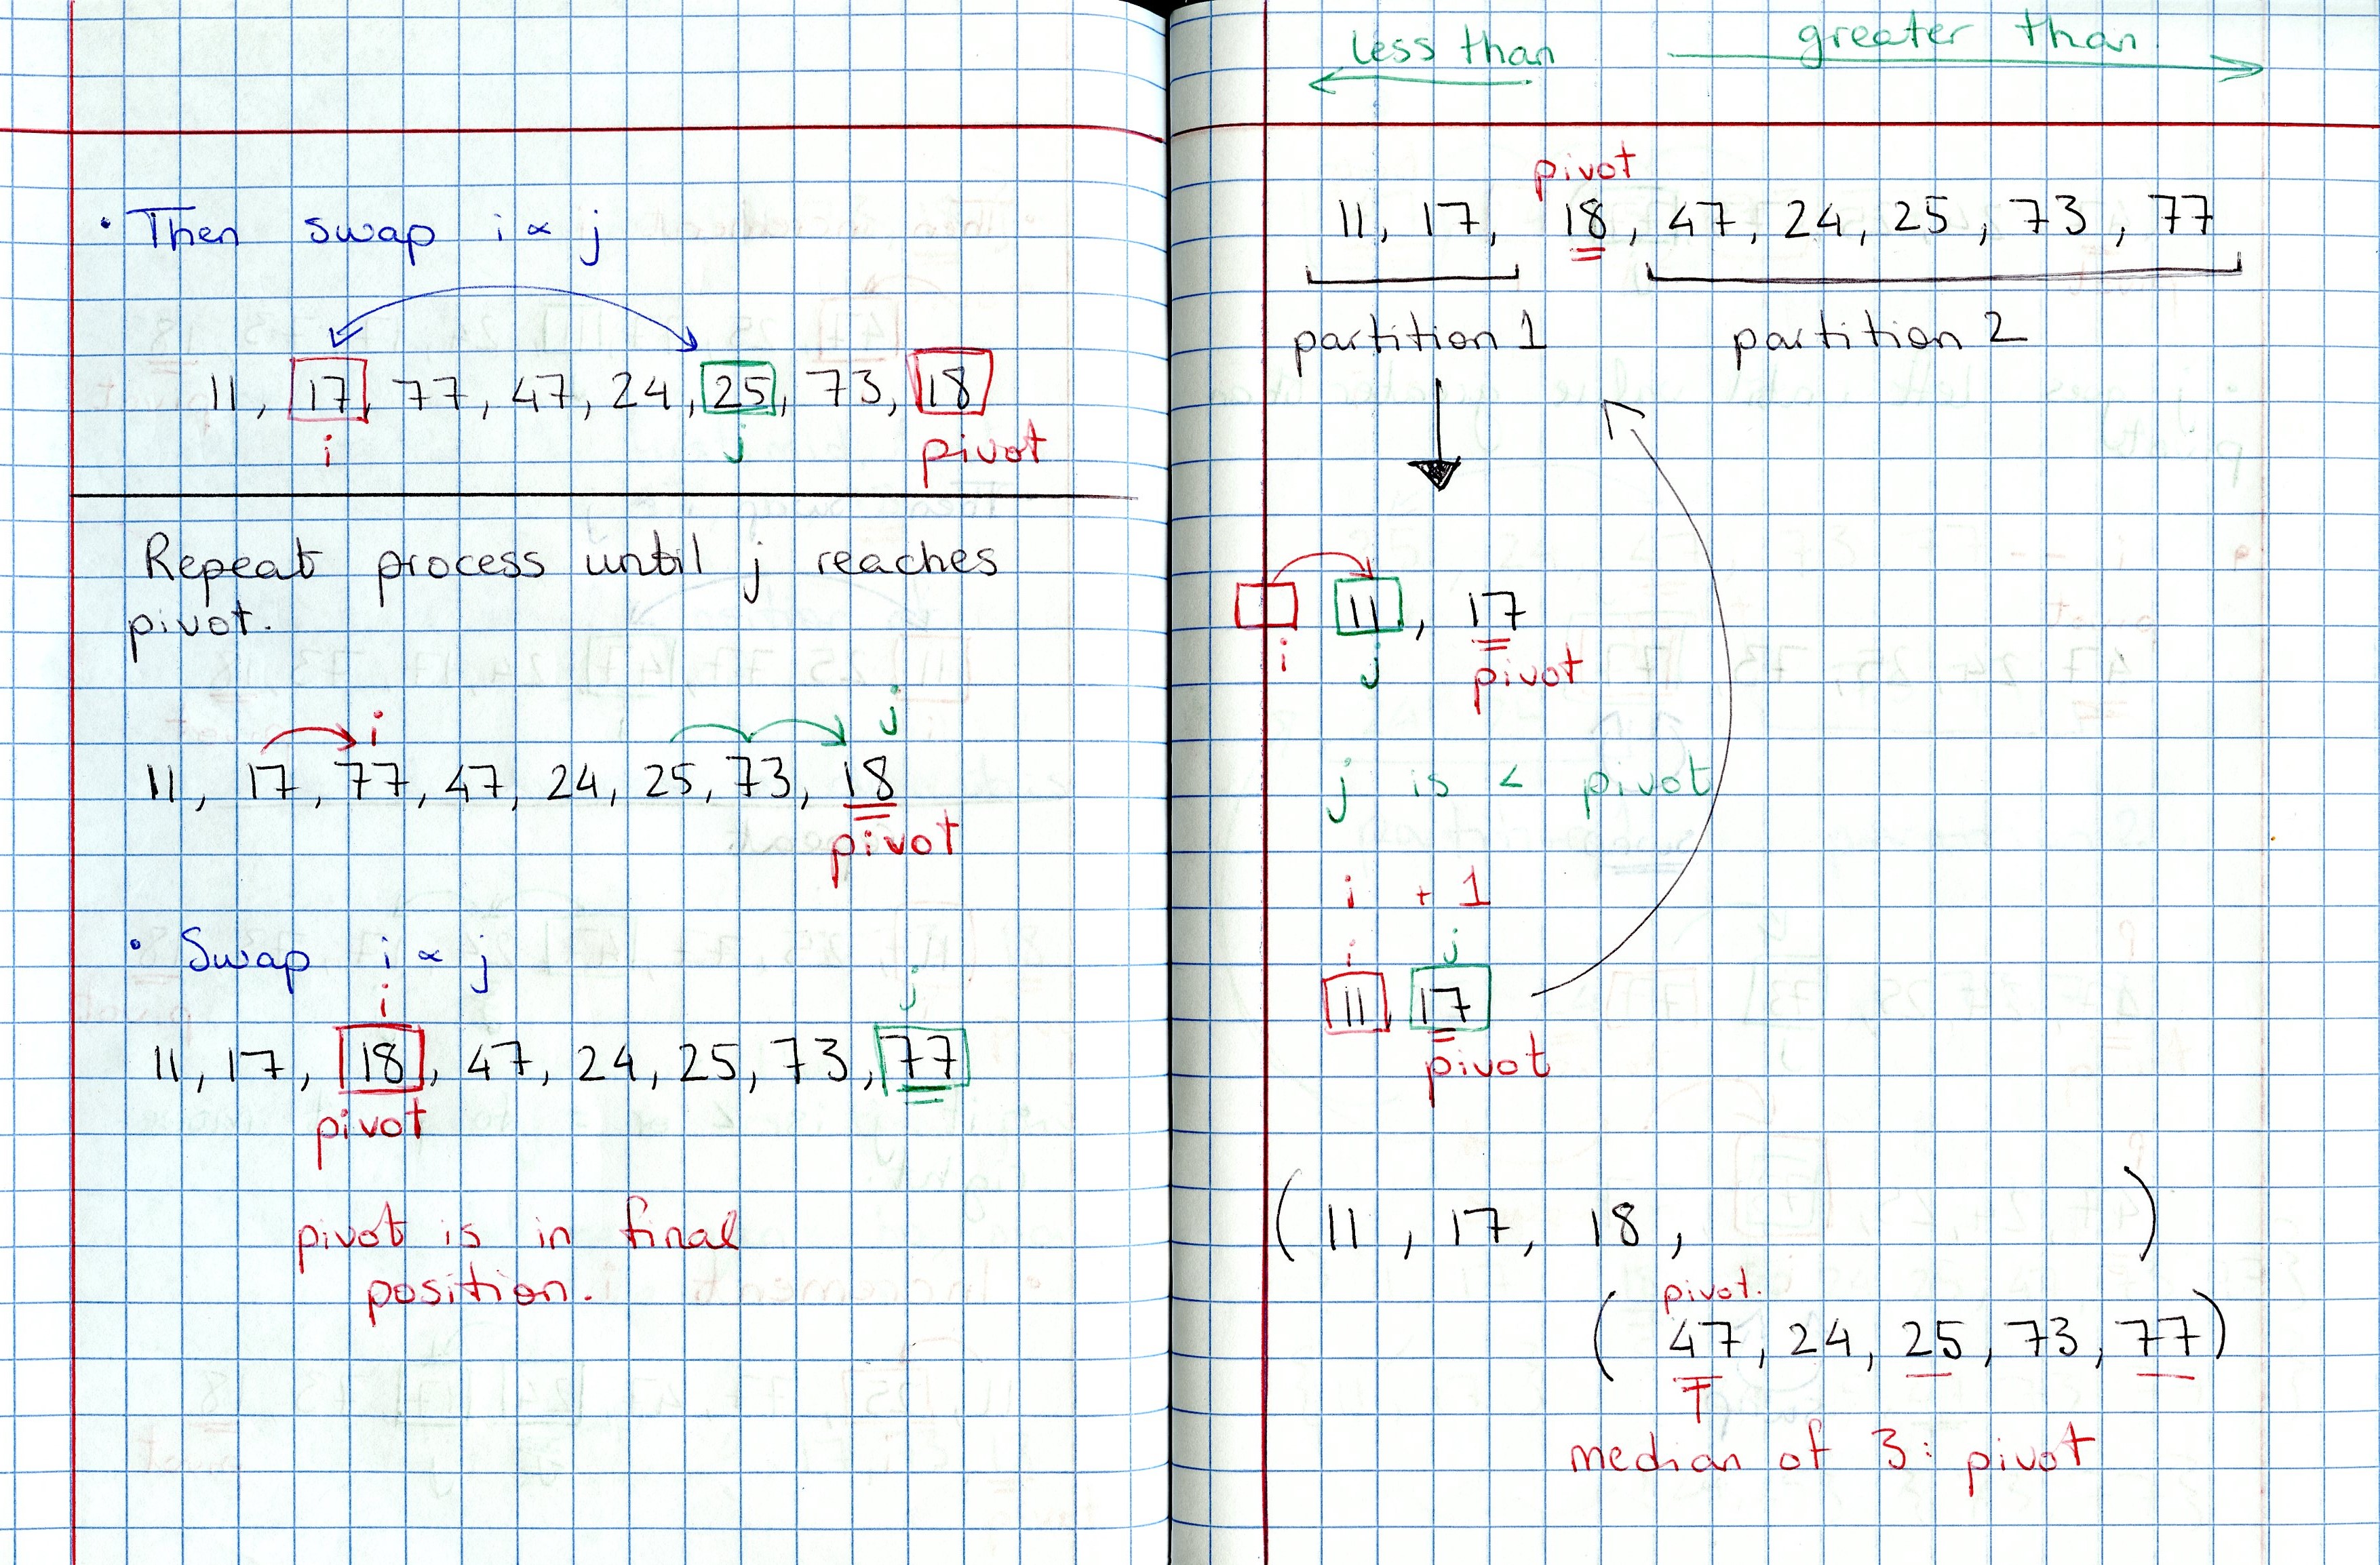 • Then swap i & j
11, 17, 77, 47, 24, 25, 73, 18
i j pivot
Repeat process until j reaches
pivot.
i j
11, 17, 77, 47, 24, 25, 73, 18
pivot
• Swap i & j
i j
11, 17, 18, 47, 24, 25, 73, 77
pivot
pivot is in final
position.
less than greater than
pivot
11, 17, 18, 47, 24, 25, 73, 77
partition 1 partition 2
11, 17
i j pivot
j is < pivot
i + 1
i j
11 17
pivot
(11, 17, 18, )
pivot.
(47, 24, 25, 73, 77)
median of 3: pivot